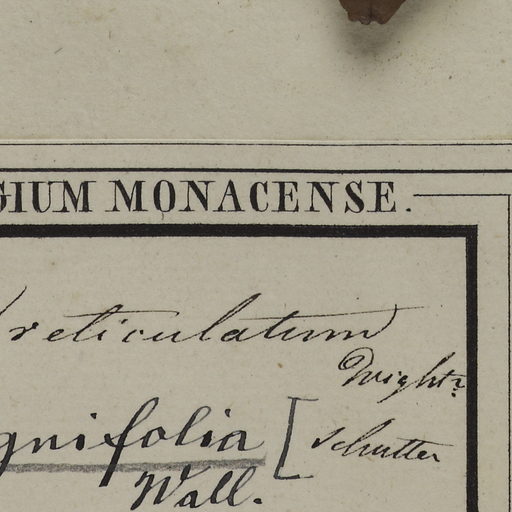 GIUM MONACENSE.
reticulatum
Wight?
gnifolia [ Schutter
Wall.